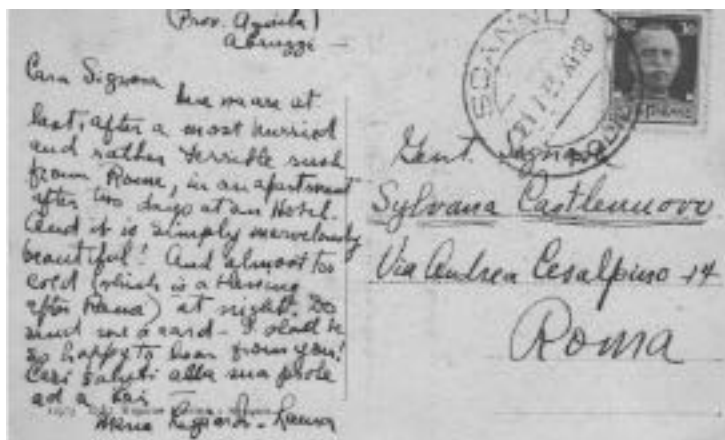 (Prov. Aquila)
Abruzzi —
Cara Signora
here we are at
last, after a most hurried
and rather terrible rush
from Rome, in an apartment
after two days at an Hotel.
And it is simply marvelously
beautiful! And almost too
cold (which is a blessing
after Roma) at night. Do
send me a card – I shall be
so happy to hear from you!
Cari saluti alla sua prole
ed a Lei —
Maria
SCANNO
Gent. Signora
Sylvana Castelnuovo
Via Andrea Cesalpino 14
Roma